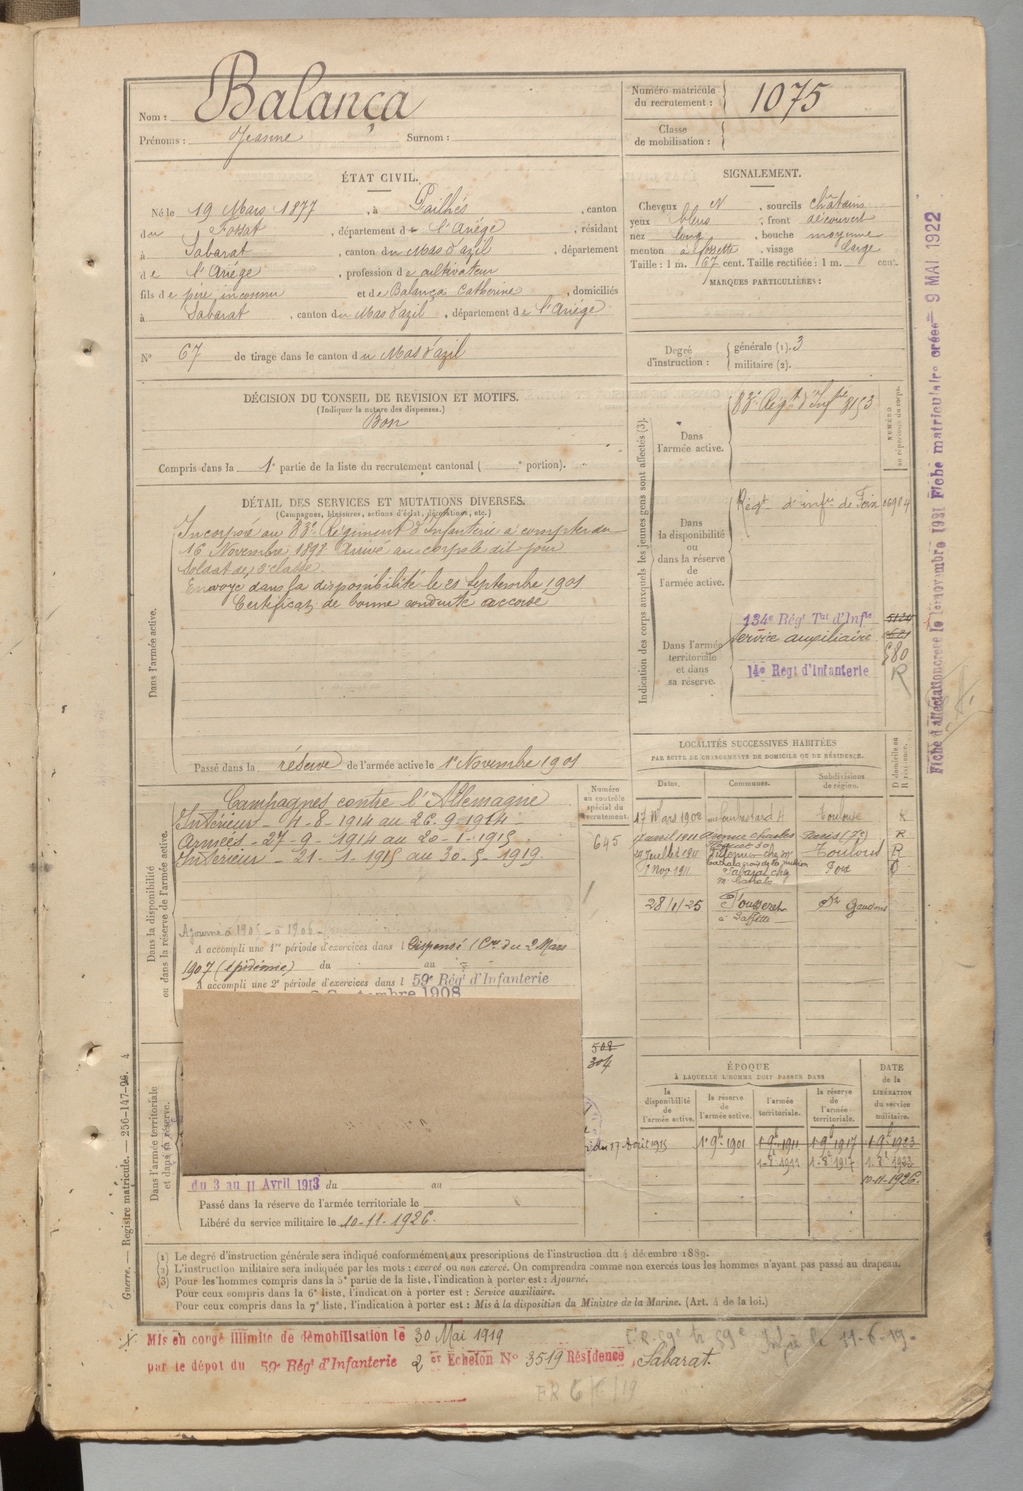 Nom : Balança
Prénoms : Jeanne Surnom :
Numéro matricule du recrutement : 1075
Classe de mobilisation :
ÉTAT CIVIL.
Né le 19 Mars 1877, à Pailhés, canton
du Fossat, département de l'Ariége, résidant
à Sabarat, canton du Mas d'azil, département
de l'Ariége, profession de cultivateur
fils de père inconnu et de Balança Catherine, domiciliés
à Sabarat, canton du Mas d'azil, département de l'Ariége
N° 67 de tirage dans le canton du Mas d'azil
SIGNALEMENT.
Cheveux N, sourcils châtains
yeux bleus, front découvert
nez long, bouche moyenne
menton à fossette, visage large
Taille : 1 m. 67 cent. Taille rectifiée : 1 m. cent.
MARQUES PARTICULIÈRES :
Degré d'instruction : générale (1). 3
militaire (2).
DÉCISION DU CONSEIL DE REVISION ET MOTIFS.
(Indiquer la nature des dispenses.)
Bon
Compris dans la 1e partie de la liste du recrutement cantonal ( e portion).
DÉTAIL DES SERVICES ET MUTATIONS DIVERSES.
(Campagnes, blessures, actions d'éclat, décorations, etc.)
Dans l'armée active.
Incorporé au 83e Régiment d'Infanterie à compter du
16 Novembre 1898 Arrivé au corps le dit jour
Soldat de 2e classe
Envoyé dans la disponibilité le 21 Septembre 1901
Certificat de bonne conduite accordé
Passé dans la réserve de l'armée active le 1er Novembre 1901
Indication des corps auxquels les jeunes gens sont affectés (3).
NUMÉRO au répertoire du corps.
Dans l'armée active.
83e Régt d'Infrie 8153
Dans la disponibilité ou dans la réserve de l'armée active.
Régt d'infie de Foix 06984
Dans l'armée territoriale et dans sa réserve.
134e Régt Tal d'Infie
Service auxiliaire
14e Régt d'Infanterie
580
R
LOCALITÉS SUCCESSIVES HABITÉES
PAR SUITE DE CHANGEMENTS DE DOMICILE OU DE RÉSIDENCE.
Dates. Communes. Subdivisions de région. D domicile ou R résidence.
17 Mars 1908 Toulouse R
Avenue Charles Paris (7e) R
Juillet 1911 Toulouse R
7 Nov 1911 Sabarat chez Foix
28/1/25 St Gaudens
Numéro au contrôle spécial du recrutement.
645
Dans la disponibilité ou dans la réserve de l'armée active.
Campagnes contre l'Allemagne
Intérieur - 4-8-1914 au 26-9-1914
Armées - 27-9-1914 au 20-1-1915
Intérieur - 21-1-1915 au 30-5-1919
Ajourné à 1905 - à 1906
A accompli une 1re période d'exercices dans l Dispensé (Cre du 2 Mars
1907 (épidémie) du au
A accompli une 2e période d'exercices dans l 59e Régt d'Infanterie
Septembre 1908
508
304
du 17 Août 1915
Dans l'armée territoriale et dans sa réserve.
du 3 au 11 Avril 1913 du au
Passé dans la réserve de l'armée territoriale le
Libéré du service militaire le 10-11-1926.
ÉPOQUE
À LAQUELLE L'HOMME DOIT PASSER DANS
DATE de la LIBÉRATION du service militaire.
la disponibilité de l'armée active. la réserve de l'armée active. l'armée territoriale. la réserve de l'armée territoriale.
1 9bre 1901 1 9bre 1911 1 9bre 1917 1 9bre 1923
1-8bre 1911 1-8bre 1917 1-8bre 1923
10-11-1926.
(1) Le degré d'instruction générale sera indiqué conformément aux prescriptions de l'instruction du 4 décembre 1889.
(2) L'instruction militaire sera indiquée par les mots : exercé ou non exercé. On comprendra comme non exercés tous les hommes n'ayant pas passé au drapeau.
(3) Pour les hommes compris dans la 5e partie de la liste, l'indication à porter est : Ajourné.
Pour ceux compris dans la 6e liste, l'indication à porter est : Service auxiliaire.
Pour ceux compris dans la 7e liste, l'indication à porter est : Mis à la disposition du Ministre de la Marine. (Art. 4 de la loi.)
Mis en congé illimité de démobilisation le 30 Mai 1919
par le dépôt du 59e Régt d'Infanterie 2 er Echelon N° 3519 Résidence Sabarat.
Guerre. — Registre matricule. — 256-147-96. 4
Fiche matriculaire créée 9 MAI 1922